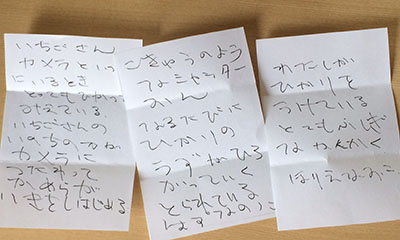 いちごさん
カメラといっ
にいるとき
とってもひかって
みえている
いちごさんの
いのちの
カメラに
つたわって
かめらが
いきをしはじめる
こきゅうのよう
なシャッター
おん
なるたびに
ひかりの
うずがひろ
がっていく
とられている
はずなのに
わたしが
ひかりを
うけている
とてもふしぎ
なかんかく